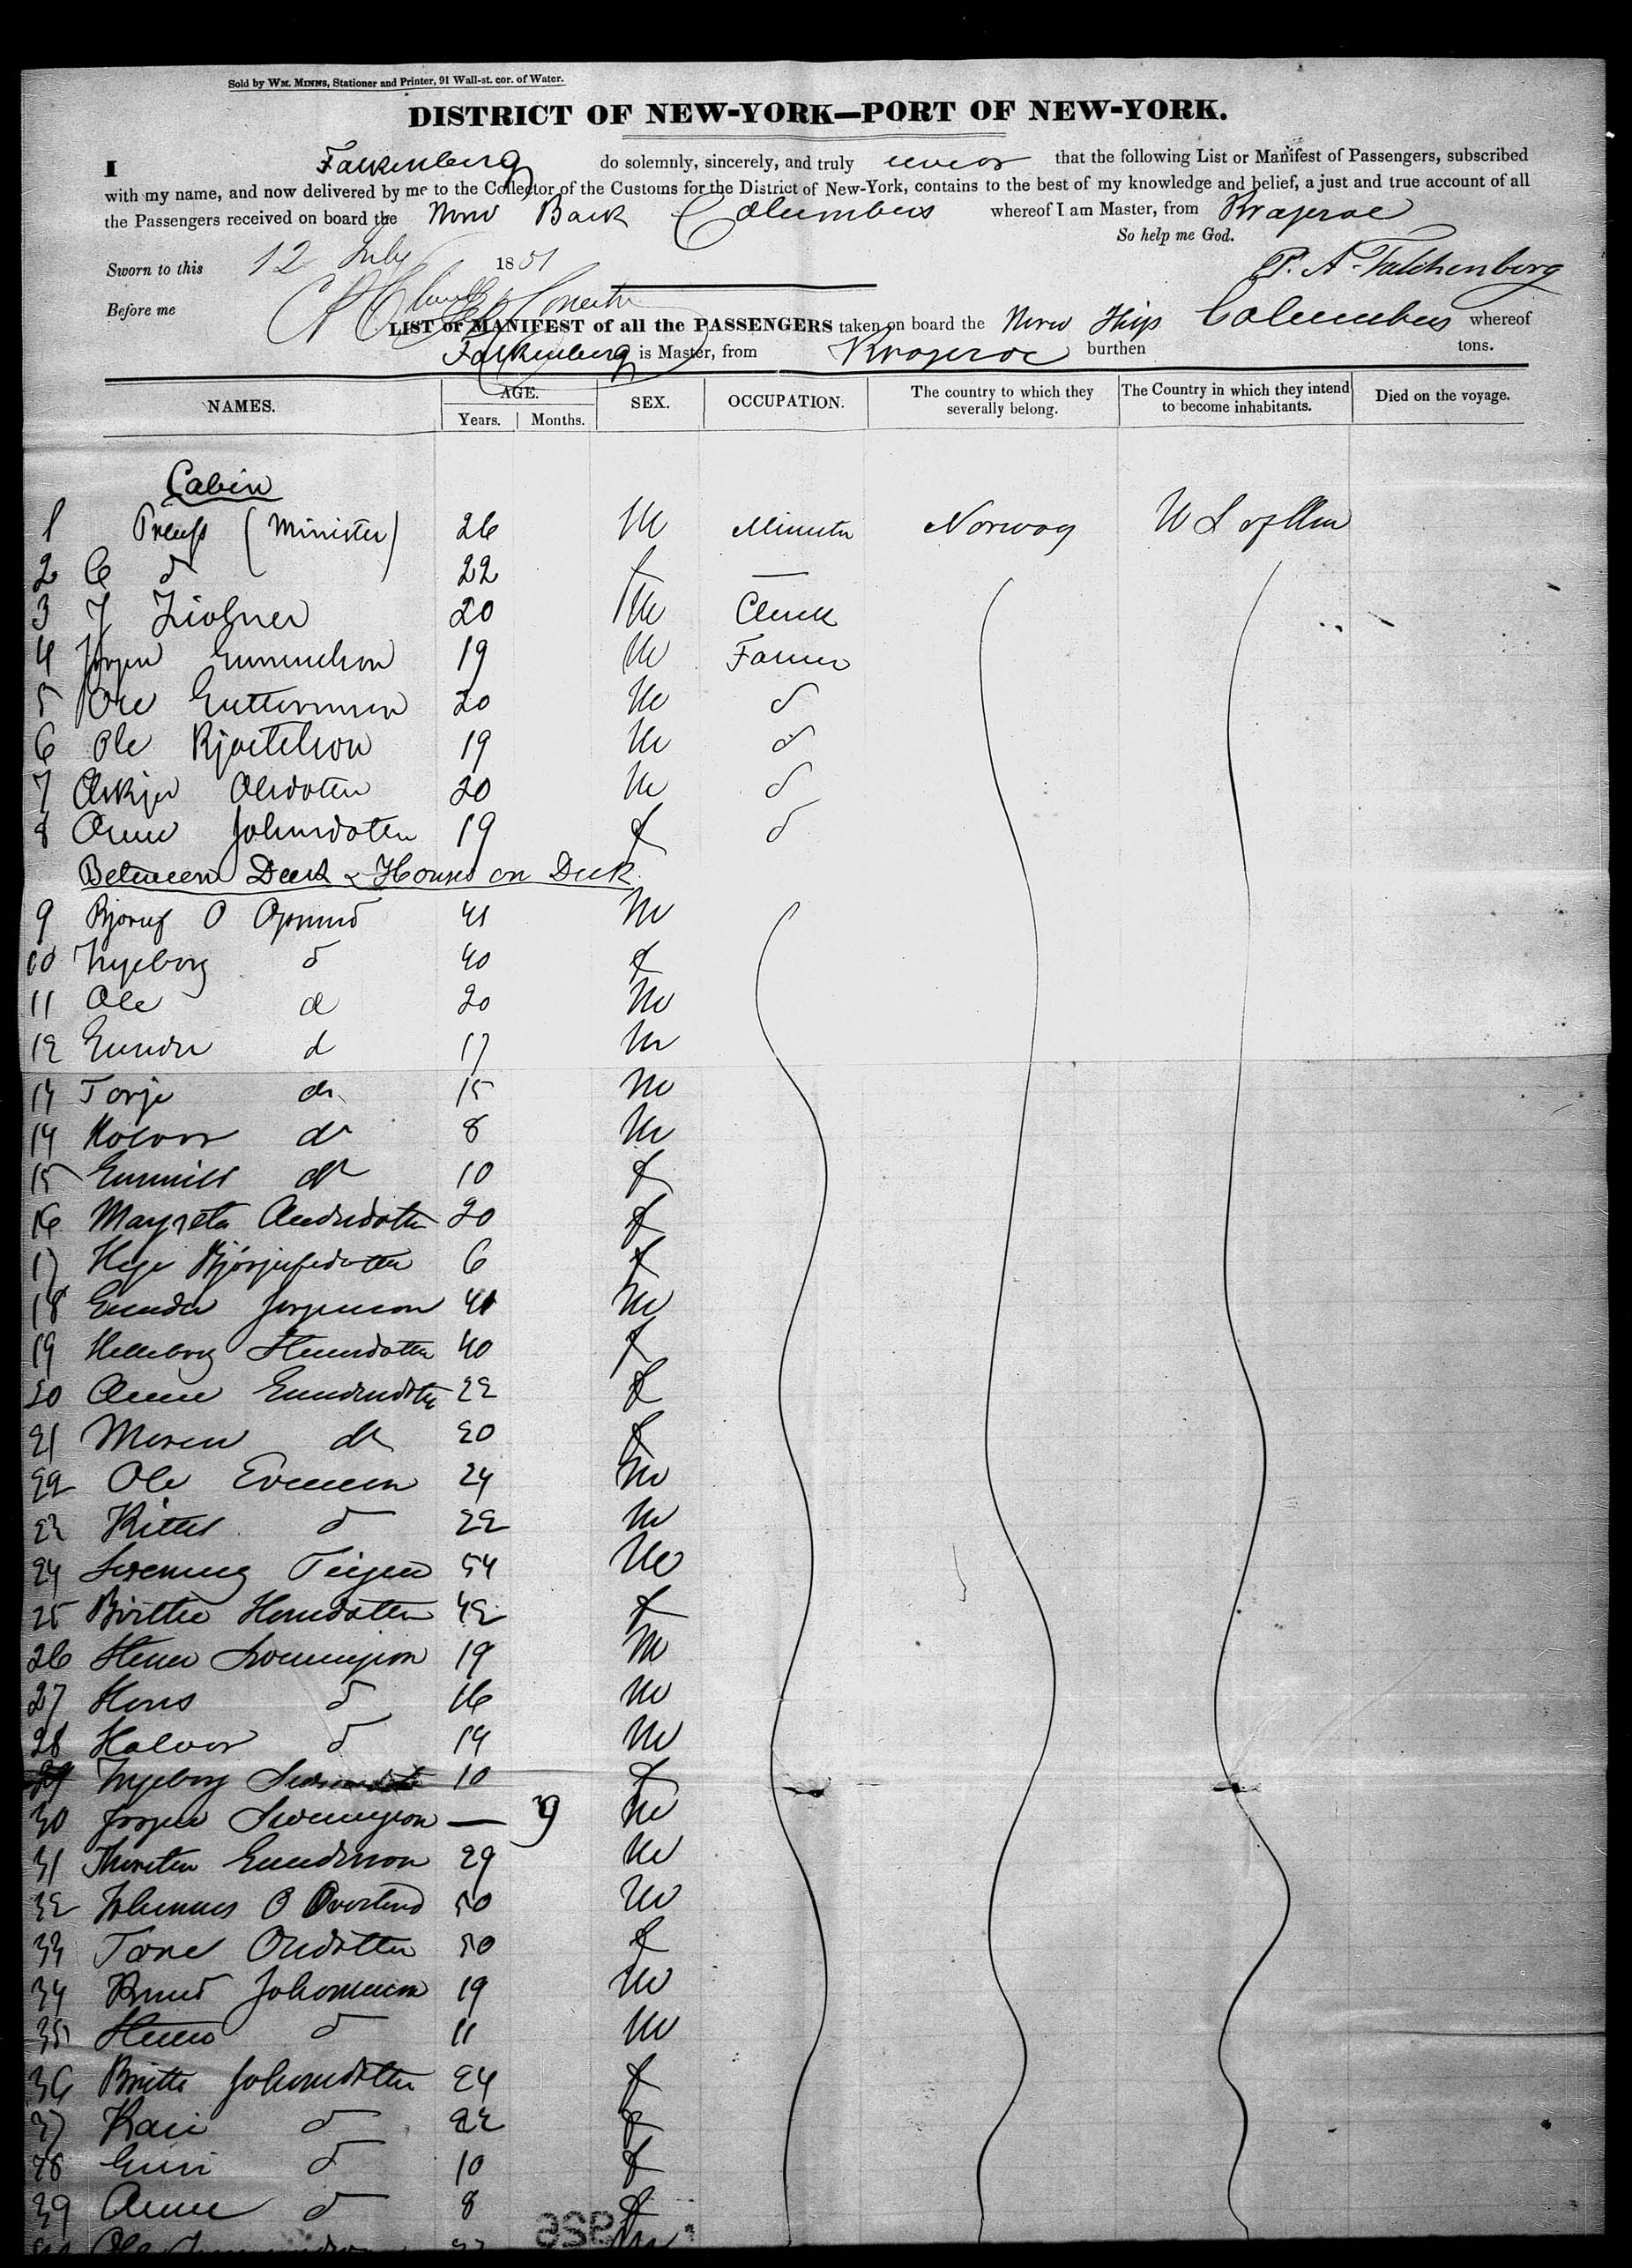 Sold by WM. MINNS, Stationer and Printer, 91 Wall-st. cor. of Water.
DISTRICT OF NEW-YORK—PORT OF NEW-YORK.
I Falkenberg do solemnly, sincerely, and truly that the following List or Manifest of Passengers, subscribed
with my name, and now delivered by me to the Collector of the Customs for the District of New-York, contains to the best of my knowledge and belief, a just and true account of all
the Passengers received on board the Norw Bark Columbus whereof I am Master, from Krageroe
So help me God.
Sworn to this 12 July 1851
P. A. Falchenberg
Before me
LIST or MANIFEST of all the PASSENGERS taken on board the Norw Ship Columbus whereof
Falkenberg is Master, from Krageroe burthen tons.
NAMES. AGE. Years. Months. SEX. OCCUPATION. The country to which they severally belong. The Country in which they intend to become inhabitants. Died on the voyage.
Cabin
1 Preuss (Minister) 26 M Minister Norway U S of Am
2 C d 22 f —
3 J 20 M Clerk
4 Jorgen 19 M Farmer
5 Ole Guttormsen 20 M d
6 Ole Kjoetelson 19 M d
7 Olsdatter 20 M d
8 Anne Johnsdatter 19 f d
Between Deck & Houses on Deck
9 O 41 M
10 Ingeborg d 40 f
11 Ole d 20 M
12 Gunder d 17 M
14 Torje do 15 M
14 Halvor do 8 M
15 Gunnild do 10 f
16 Margreta 20 f
17 Hege 6 f
18 Gunder Jorgenson 41 M
19 Helleborg 40 f
20 Anne Gundersdatter 22 f
21 Maren do 20 f
22 Ole Evensen 24 M
23 Kittel d 22 M
24 Teigen 54 M
25 Birthe Hansdatter 42 f
26 19 M
27 Hans d 16 M
28 Halvor d 14 M
29 Ingeborg 10 f
30 Jorgen — 9 M
31 Thorsten Gunderson 29 M
32 Johannes O Overland 50 M
33 Tone Olsdatter 50 f
34 Knud Johannesen 19 M
35 d 11 M
36 Britte 24 f
37 Kari d 22 f
38 Guri d 10 f
39 Anne d 8 f